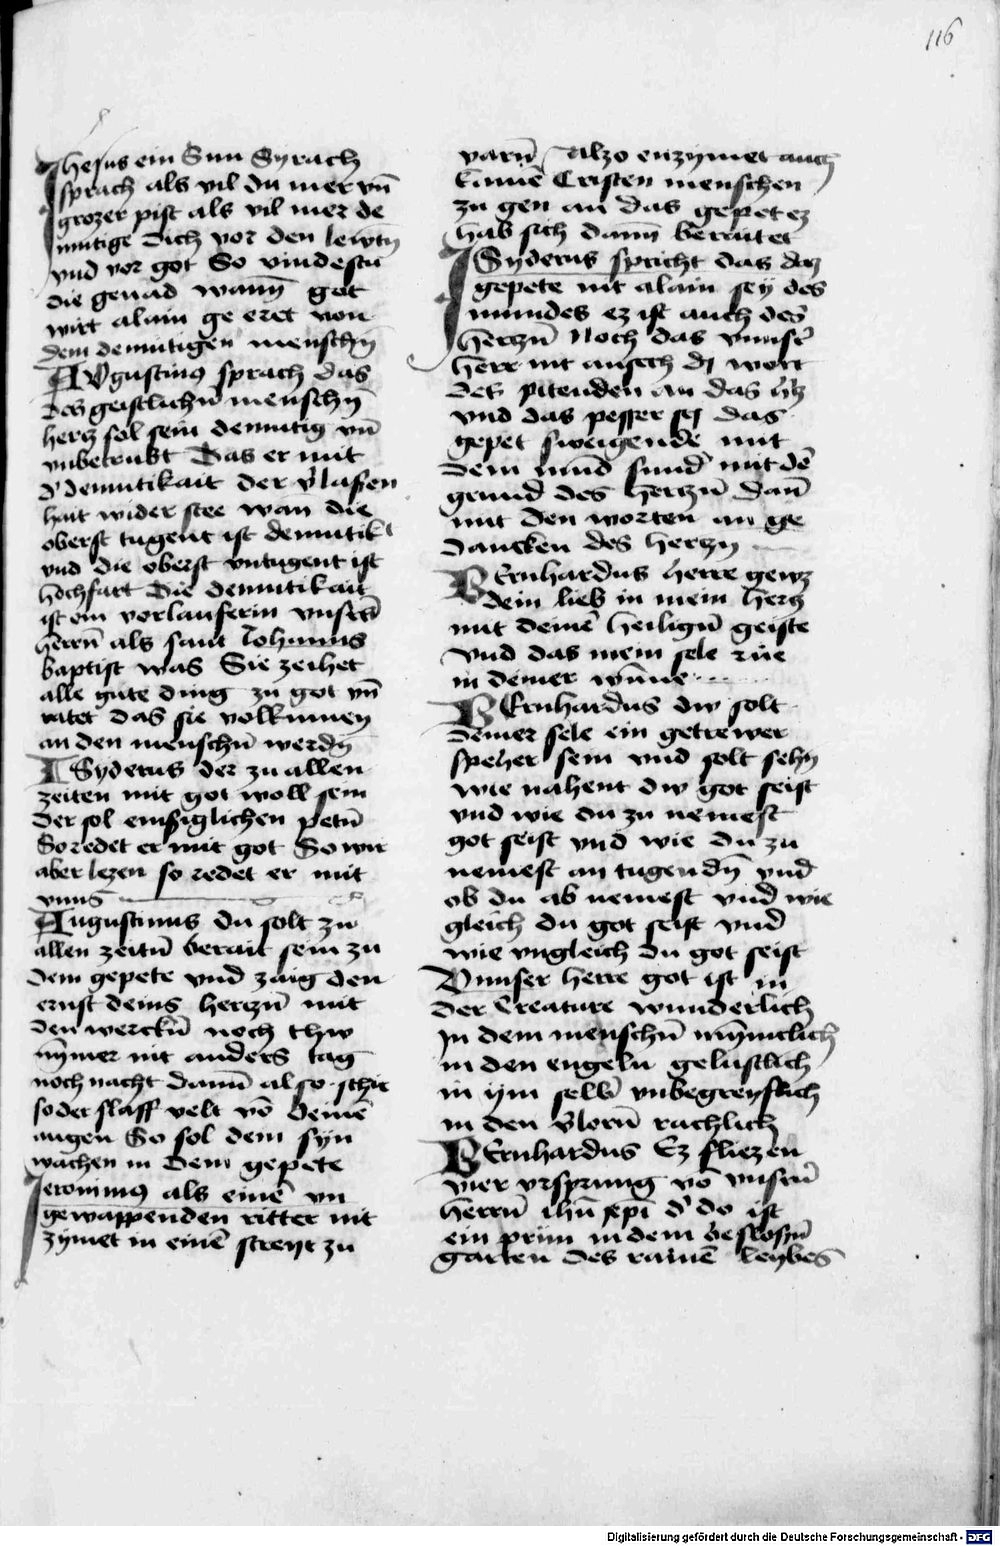 116
Jhesus ein Sun Syrach
sprach als vil du mer vn̄
grozer pist als vil mer de
mutige dich vor den lewtn̄
vnd vor got So vindestu
die genad wann̄ got
wirt alain ge eret von
dem demutigen menschn̄
AVgustinus sprach das
des geistlichn̄ menschn̄
hertz sol sein demutig vn̄
vnbetrubt Das er mit
d' demutikait der v'lasen
hait wider stee wan die
oberst tugent ist demutik't
vnd die oberst vntugent ist
hochfart Die demutikait
ist ein vorlauferin vnsers
herrn̄ als sant Johannis
baptist was Sie zeihet
alle gute ding zu got vn̄
ratet das sie volkumen
an den menschn̄ werdn̄
ISyderus der zu allen
zeiten mit got woll sein
der sol emssiglichen petn̄
So redet er mit got So wir
aber lezen so redet er mit
vnns
Augustinus du solt zu
allen zeitn̄ berait sein zu
dem gepete vnd zaig den
ernst deins hertzn̄ mit
den werckn̄ noch thw
nȳmer nit anders tag
noch nacht dann̄ also schir
so der slaff velt vō deinē
augen So sol dein syn
wachen in dem gepete
Jeronimus als einē vn
gewappenden ritter nit
zymet in einē streyt zu
varn̄ Alzo enzymet auch
kainē Cristen menschen
zu gen an das gepet ez
hab sich dann̄ berrutet
ISyderus spricht das daz
gepete nit alain sey des
mundes ez ist auch des
hertzn̄ Noch das vnnser
herr nit ansech di wort
des pitenden an das h'tz
vnd das pesser sej das
gepet sweigende mit
dem mūd sund' mit dē
grund des hertzn̄ dan̄
mit den worten an ge
dancken des hertzn
BErnhardus herre gewz
dein lieb in mein hertz
mit deinē heilign̄ geiste
vnd das mein sele rue
in deiner wūne
BErnhardus dw solt
deiner sele ein getrewer
speher sein vnd solt sehn
wie nahent dw got seist
vnd wie du zu nemest
got seist vnd wie du zu
nemest an tugendn̄ vnd
ob du ab nemest vnd wie
gleich du got seist vnd
wie vngleich du got seist
Vnnser herre got ist in
der Creature wunderlich
in dem menschn̄ mȳnnclich
in den engeln gelustlich
in ym selb' vnbegreyflich
in den v'lorn̄ rachlich
BErnhardus Ez fliezen
vier vrsprung vō vnsern̄
herrn̄ ihū xpī d' do ist
ein prun in dem beslosn̄
garten des rainē leybes
Digitalisierung gefördert durch die Deutsche Forschungsgemeinschaft - DFG